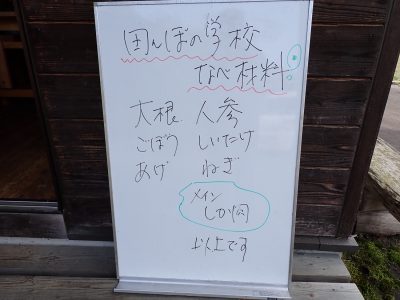 田んぼの学校
なべ材料
大根 人参
ごぼう しいたけ
あげ ねぎ
メイン
しか肉
以上です